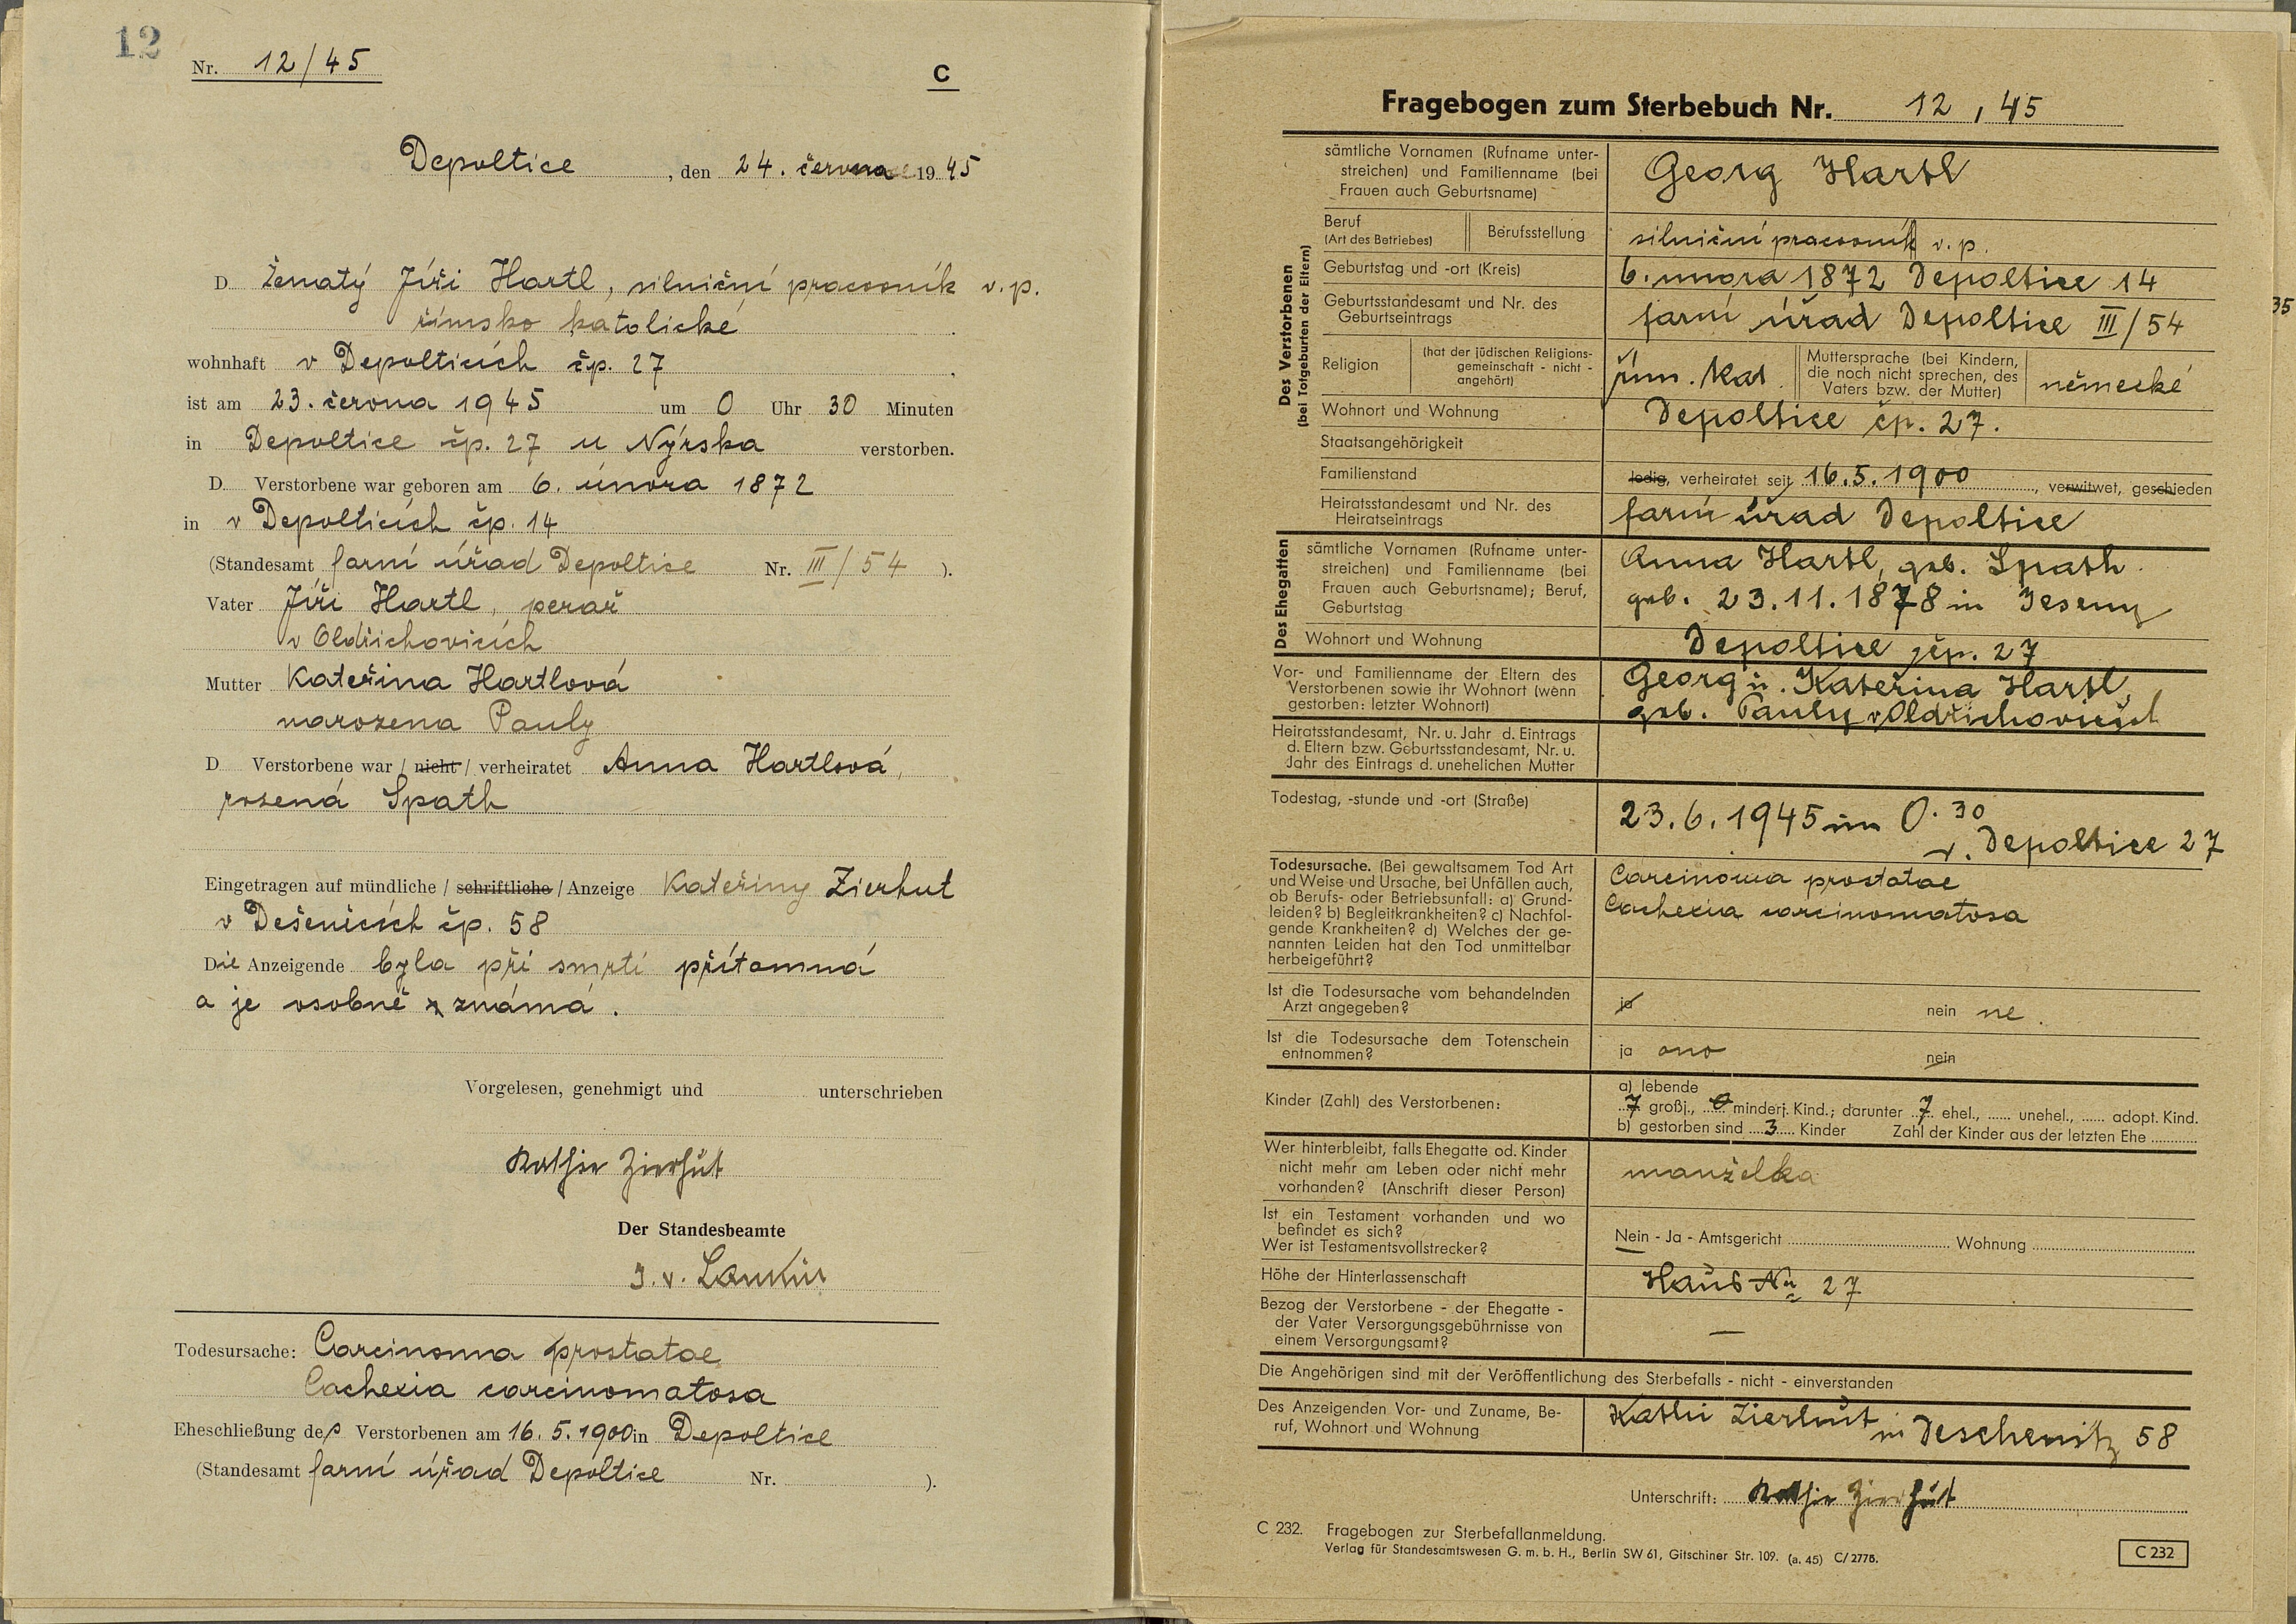 12
Nr. 12/45
C
Depoltice, den 24. června 1945
D. Ženatý Jiří Hartl, silniční pracovník v. p.
římsko katolické
wohnhaft v Depolticích čp. 27
ist am 23. června 1945 um 0 Uhr 30 Minuten
in Depoltice čp. 27 u Nýrska verstorben.
D. Verstorbene war geboren am 6. února 1872
in v Depolticích čp. 14
(Standesamt farní úřad Depoltice Nr. III/54 ).
Vater Jiří Hartl,
v Oldřichovicích
Mutter Kateřina Hartlová
narozena Pauly
D. Verstorbene war / nicht / verheiratet Anna Hartlová,
rozená Spath
Eingetragen auf mündliche / schriftliche / Anzeige Kateřiny Zierhut
v Dešenicích čp. 58
Die Anzeigende byla při smrti přítomná
a je osobně známá.
Vorgelesen, genehmigt und unterschrieben
Kathie Zierhut
Der Standesbeamte
J. v.
Todesursache: Carcinoma prostatae
Cachexia carcinomatosa
Eheschließung des Verstorbenen am 16. 5. 1900 in Depoltice
(Standesamt farní úřad Depoltice Nr. ).
Fragebogen zum Sterbebuch Nr. 12, 45
Des Verstorbenen
(bei Totgeburten der Eltern)
sämtliche Vornamen (Rufname unter-
streichen) und Familienname (bei
Frauen auch Geburtsname)
Georg Hartl
Beruf
(Art des Betriebes)
Berufsstellung
silniční pracovník v. p.
Geburtstag und -ort (Kreis)
6. února 1872 Depoltice 14
Geburtsstandesamt und Nr. des
Geburtseintrags
farní úřad Depoltice III/54
35
Religion
(hat der jüdischen Religions-
gemeinschaft - nicht -
angehört)
řím. kat.
Muttersprache (bei Kindern,
die noch nicht sprechen, des
Vaters bzw. der Mutter)
německé
Wohnort und Wohnung
Depoltice čp. 27.
Staatsangehörigkeit
Familienstand
ledig, verheiratet seit 16.5.1900, verwitwet, geschieden
Heiratsstandesamt und Nr. des
Heiratseintrags
farní úřad Depoltice
Des Ehegatten
sämtliche Vornamen (Rufname unter-
streichen) und Familienname (bei
Frauen auch Geburtsname); Beruf,
Geburtstag
Anna Hartl, geb. Spath.
geb. 23.11.1878 in Jeseny
Wohnort und Wohnung
Depoltice čp. 27
Vor- und Familienname der Eltern des
Verstorbenen sowie ihr Wohnort (wenn
gestorben: letzter Wohnort)
Georg u. Kateřina Hartl,
geb. Pauly v Oldřichovicích
Heiratsstandesamt, Nr. u. Jahr d. Eintrags
d. Eltern bzw. Geburtsstandesamt, Nr. u.
Jahr des Eintrags d. unehelichen Mutter
Todestag, -stunde und -ort (Straße)
23.6.1945 um 0.30
v. Depoltice 27
Todesursache. (Bei gewaltsamem Tod Art
und Weise und Ursache, bei Unfällen auch,
ob Berufs- oder Betriebsunfall: a) Grund-
leiden? b) Begleitkrankheiten? c) Nachfol-
gende Krankheiten? d) Welches der ge-
nannten Leiden hat den Tod unmittelbar
herbeigeführt?
Carcinoma prostatae
Cachexia carcinomatosa
Ist die Todesursache vom behandelnden
Arzt angegeben?
ja nein ne.
Ist die Todesursache dem Totenschein
entnommen?
ja ano nein
Kinder (Zahl) des Verstorbenen:
a) lebende
7 großj., 0 minderj. Kind.; darunter 7 ehel., ...... unehel., ...... adopt. Kind.
b) gestorben sind 3 Kinder Zahl der Kinder aus der letzten Ehe
Wer hinterbleibt, falls Ehegatte od. Kinder
nicht mehr am Leben oder nicht mehr
vorhanden? (Anschrift dieser Person)
manželka
Ist ein Testament vorhanden und wo
befindet es sich?
Wer ist Testamentsvollstrecker?
Nein - Ja - Amtsgericht Wohnung
Höhe der Hinterlassenschaft
Haus Nr. 27
Bezog der Verstorbene - der Ehegatte -
der Vater Versorgungsgebührnisse von
einem Versorgungsamt?
—
Die Angehörigen sind mit der Veröffentlichung des Sterbefalls - nicht - einverstanden
Des Anzeigenden Vor- und Zuname, Be-
ruf, Wohnort und Wohnung
Kathi Zierhut in Deschenitz 58
Unterschrift: Kathie Zierhut
C 232. Fragebogen zur Sterbefallanmeldung.
Verlag für Standesamtswesen G. m. b. H., Berlin SW 61, Gitschiner Str. 109. (a. 45) C/2775.
C 232